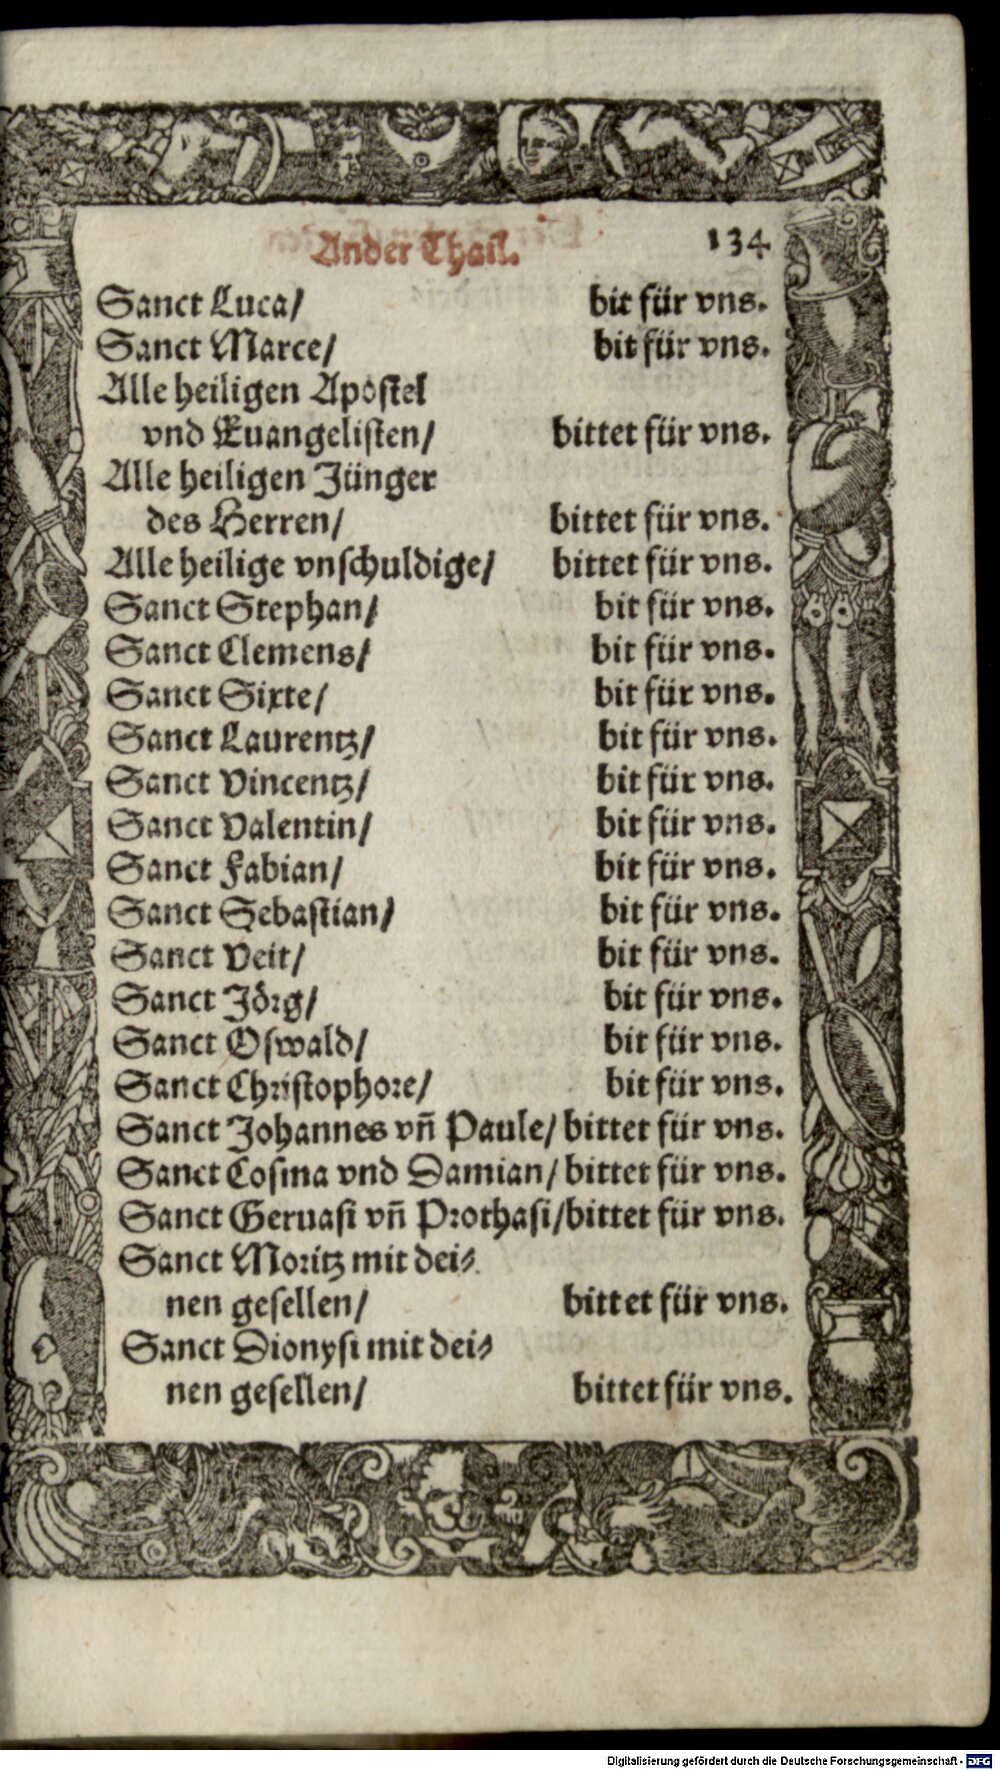 Ander Thail.
134
Sanct Luca/ bit für vns.
Sanct Marce/ bit für vns.
Alle heiligen Apostel
vnd Euangelisten/ bittet für vns.
Alle heiligen Jünger
des Herren/ bittet für vns.
Alle heilige vnschuldige/ bittet für vns.
Sanct Stephan/ bit für vns.
Sanct Clemens/ bit für vns.
Sanct Sixte/ bit für vns.
Sanct Laurentz/ bit für vns.
Sanct Vincentz/ bit für vns.
Sanct Valentin/ bit für vns.
Sanct Fabian/ bit für vns.
Sanct Sebastian/ bit für vns.
Sanct Veit/ bit für vns.
Sanct Jörg/ bit für vns.
Sanct Oswald/ bit für vns.
Sanct Christophore/ bit für vns.
Sanct Johannes vñ Paule/ bittet für vns.
Sanct Cosma vnd Damian/ bittet für vns.
Sanct Geruasi vñ Prothasi/ bittet für vns.
Sanct Moritz mit dei⸗
nen gesellen/ bittet für vns.
Sanct Dionysi mit dei⸗
nen gesellen/ bittet für vns.
Digitalisierung gefördert durch die Deutsche Forschungsgemeinschaft - DFG